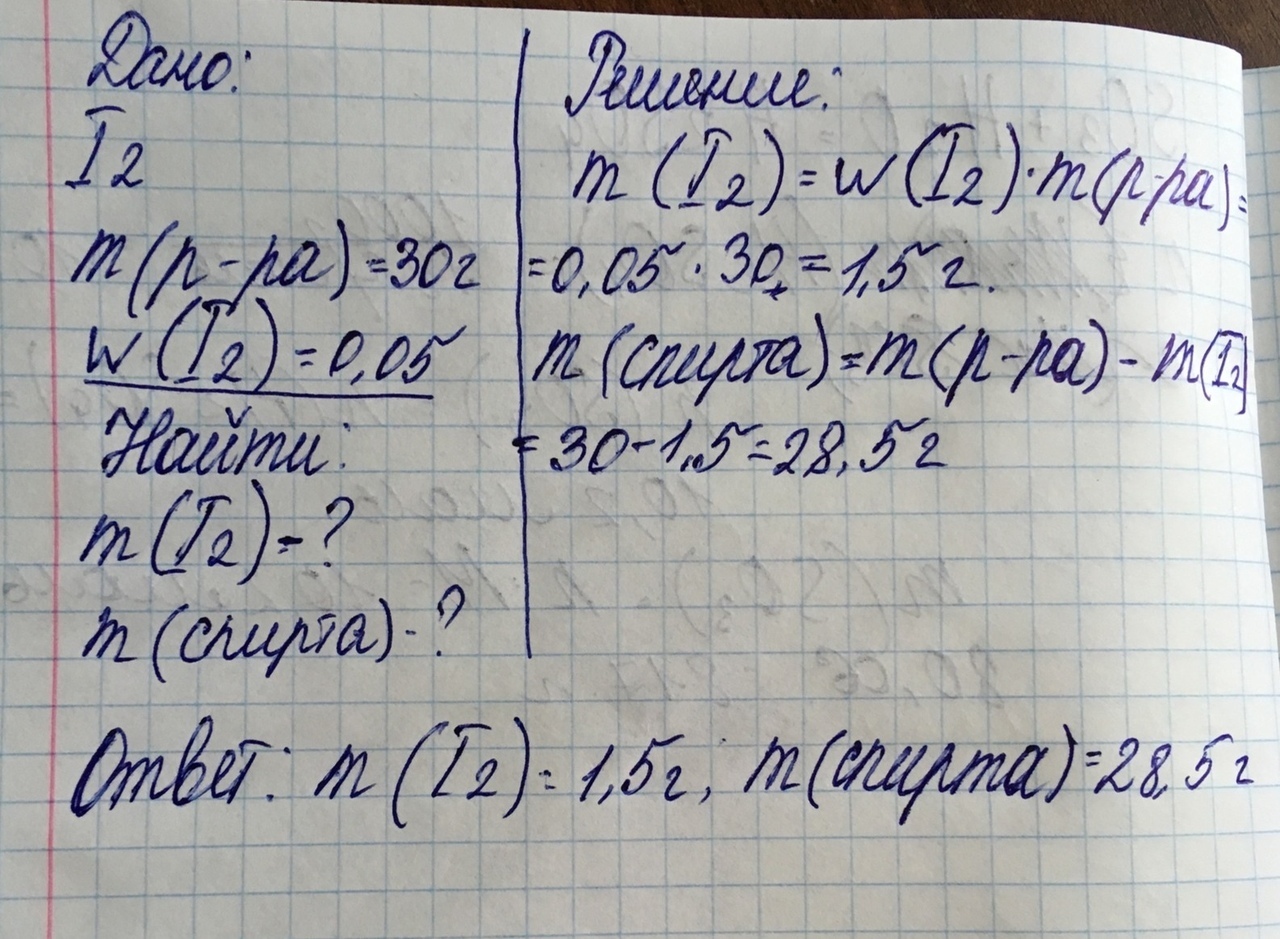 Дано:
I2
m(р-ра)=30г
w(I2)=0,05
Найти:
m(I2)-?
m(спирта)-?
Решение:
m(I2)=w(I2)·m(р-ра)=
=0,05·30=1,5г.
m(спирта)=m(р-ра)-m(I2)
=30-1,5=28,5г
Ответ: m(I2)=1,5г; m(спирта)=28,5г